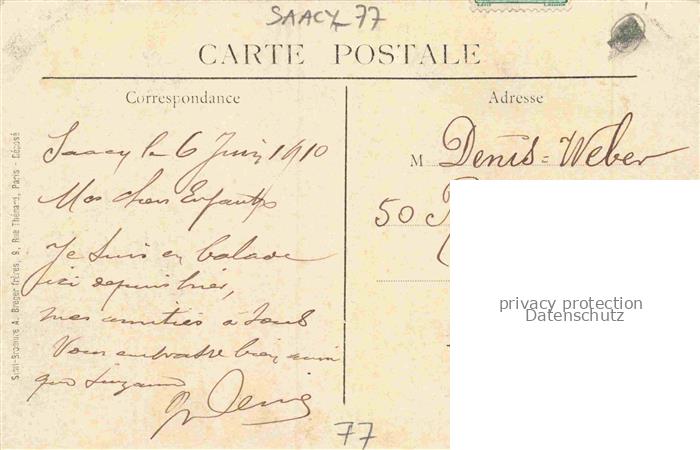 SAACY 77
CARTE POSTALE
Correspondance
Adresse
Saacy le 6 Juin 1910
Mes chers Enfants
Je suis en balade
ici depuis hier,
mes amitiés à tous
Vous embrasse bien ainsi
que Suzanne
Denis
M Denis=Weber
50
77
Simili-Bromure A. Breger frères, 9, Rue Thénard, Paris - Déposé
privacy protection
Datenschutz